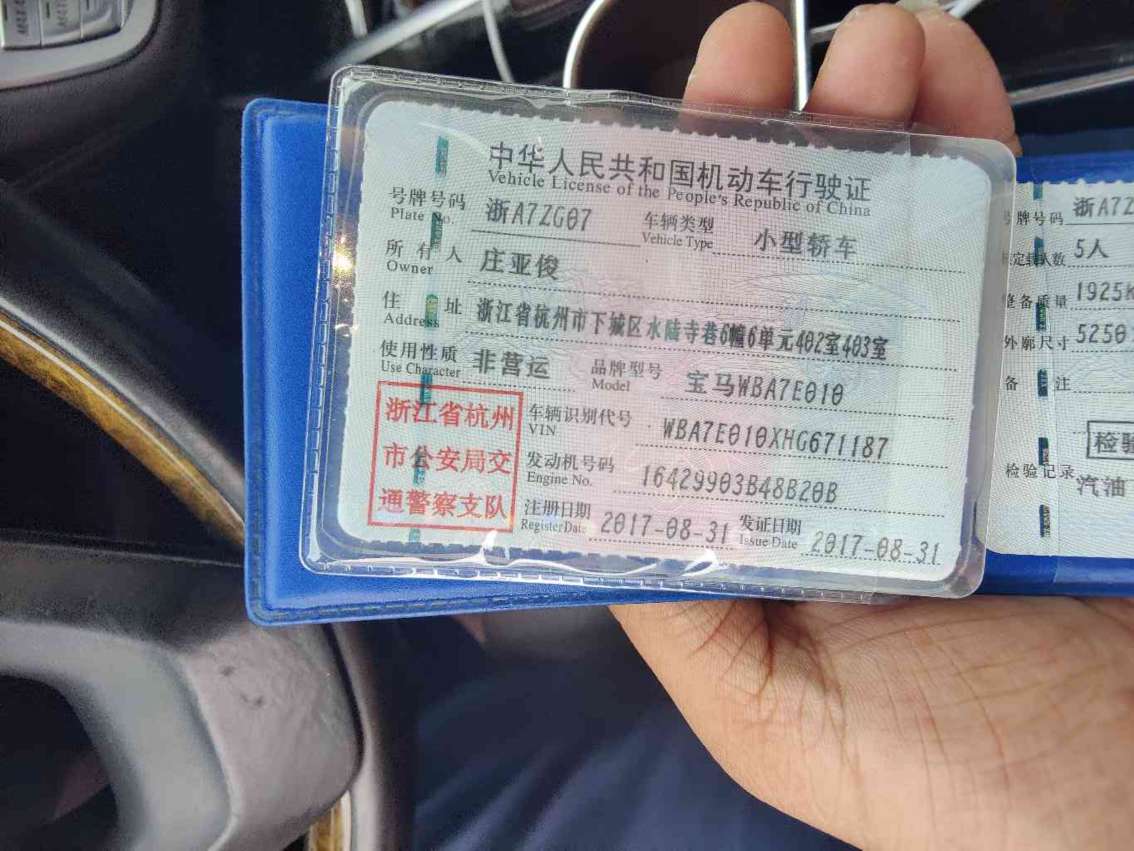 中华人民共和国机动车行驶证
Vehicle License of the People's Republic of China
号牌号码 浙A7ZG07 车辆类型 小型轿车
Plate No. Vehicle Type
所有人 庄亚俊
Owner
住址 浙江省杭州市下城区水陆寺巷6幢6单元402室403室
Address
使用性质 非营运 品牌型号 宝马WBA7E010
Use Character Model
浙江省杭州
市公安局交
通警察支队
车辆识别代号 WBA7E010XHG671187
VIN
发动机号码 16429903B48B20B
Engine No.
注册日期 2017-08-31 发证日期 2017-08-31
Register Date Issue Date
号牌号码 浙A7Z
定载人数 5人
整备质量 1925K
外廓尺寸 5250
备注
检验
检验记录 汽油